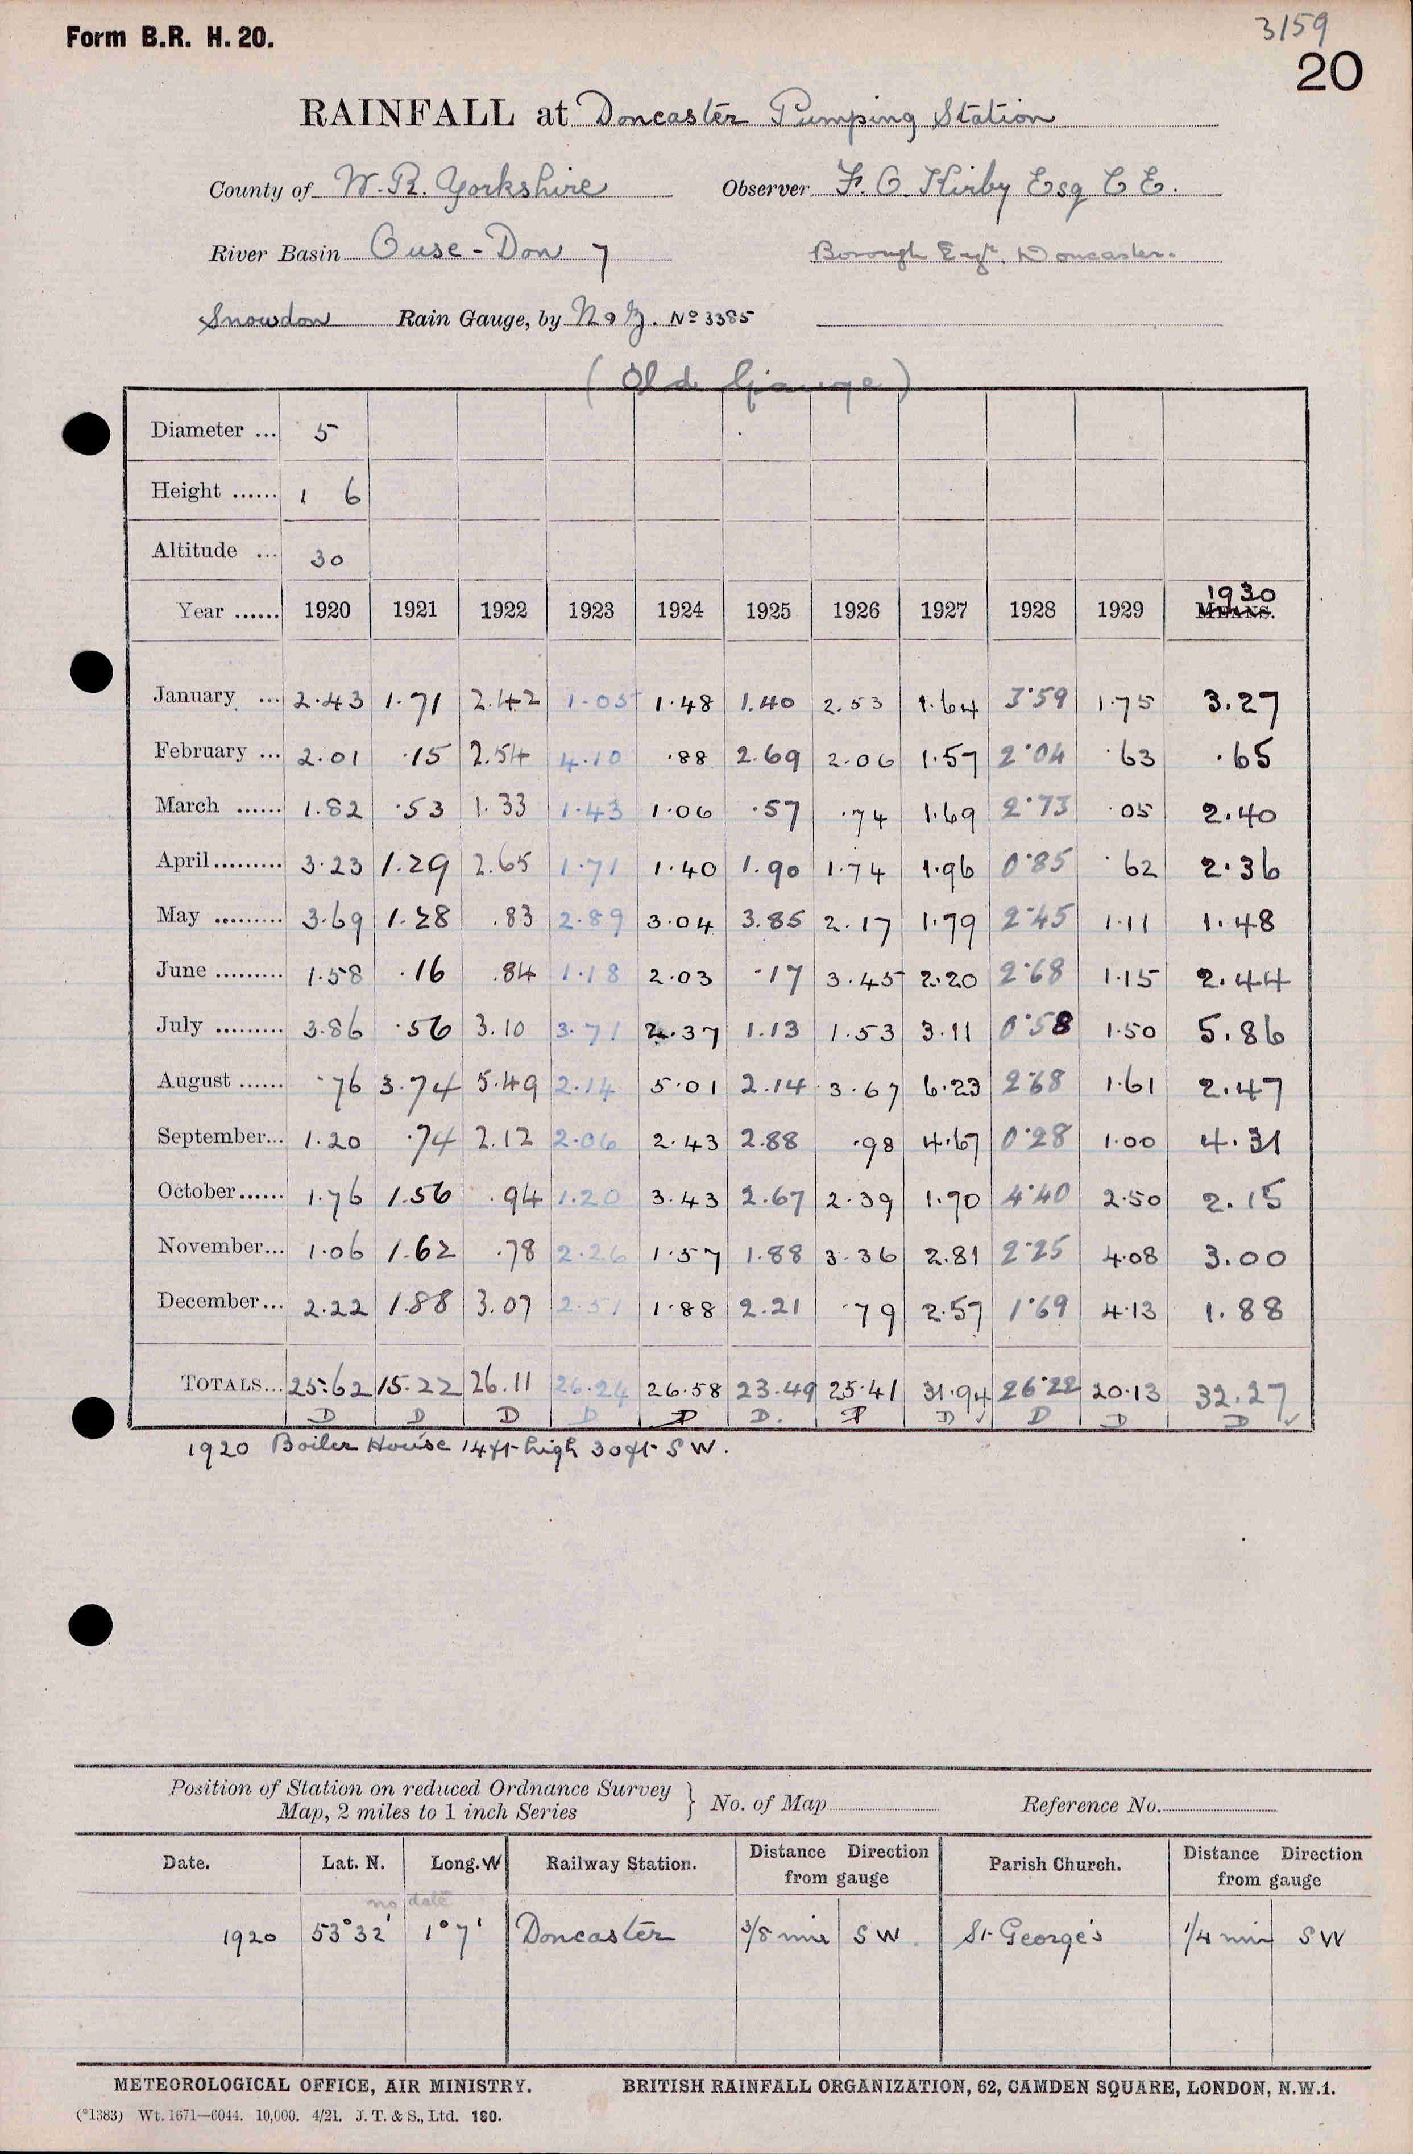 Form B.R. H. 20.
3159
20
RAINFALL at Doncaster Pumping Station
County of W. R. Yorkshire Observer F. O. Kirby Esq C E.
River Basin Ouse - Don 7 Borough Engr. Doncaster.
Snowdon Rain Gauge, by N & Z. No 3385
(Old Gauge)
Diameter ... 5
Height ...... 1 6
Altitude ... 30
Year ...... 1920 1921 1922 1923 1924 1925 1926 1927 1928 1929 1930 MEANS.
January ... 2.43 1.71 2.42 1.05 1.48 1.40 2.53 1.64 3.59 1.75 3.27
February ... 2.01 .15 2.54 4.10 .88 2.69 2.06 1.57 2.04 .63 .65
March ...... 1.82 .53 1.33 1.43 1.06 .57 .74 1.69 2.73 .05 2.40
April ......... 3.23 1.29 2.65 1.71 1.40 1.90 1.74 1.96 0.85 .62 2.36
May ......... 3.69 1.28 .83 2.89 3.04 3.85 2.17 1.79 2.45 1.11 1.48
June ......... 1.58 .16 .84 1.18 2.03 .17 3.45 2.20 2.68 1.15 2.44
July ......... 3.86 .56 3.10 3.71 2.37 1.13 1.53 3.11 0.58 1.50 5.86
August ...... .76 3.74 5.49 2.14 5.01 2.14 3.67 6.23 2.68 1.61 2.47
September... 1.20 .74 2.12 2.06 2.43 2.88 .98 4.67 0.28 1.00 4.31
October ...... 1.76 1.56 .94 1.20 3.43 2.67 2.39 1.70 4.40 2.50 2.15
November... 1.06 1.62 .78 2.26 1.57 1.88 3.36 2.81 2.25 4.08 3.00
December... 2.22 1.88 3.07 2.51 1.88 2.21 .79 2.57 1.69 4.13 1.88
TOTALS... 25.62 15.22 26.11 26.24 26.58 23.49 25.41 31.94 26.22 20.13 32.27
D D D D D D. D D ✓ D D D ✓
1920 Boiler House 14ft high 30ft S W.
Position of Station on reduced Ordnance Survey
Map, 2 miles to 1 inch Series } No. of Map Reference No.
Date. Lat. N. Long. W Railway Station. Distance Direction from gauge Parish Church. Distance Direction from gauge
no date
1920 53°32' 1°7' Doncaster 3/8 mile S W. St George's 1/4 mile S W
METEOROLOGICAL OFFICE, AIR MINISTRY. BRITISH RAINFALL ORGANIZATION, 62, CAMDEN SQUARE, LONDON, N.W.1.
(*1383) Wt. 1671—6044. 10,000. 4/21. J. T. & S., Ltd. 180.